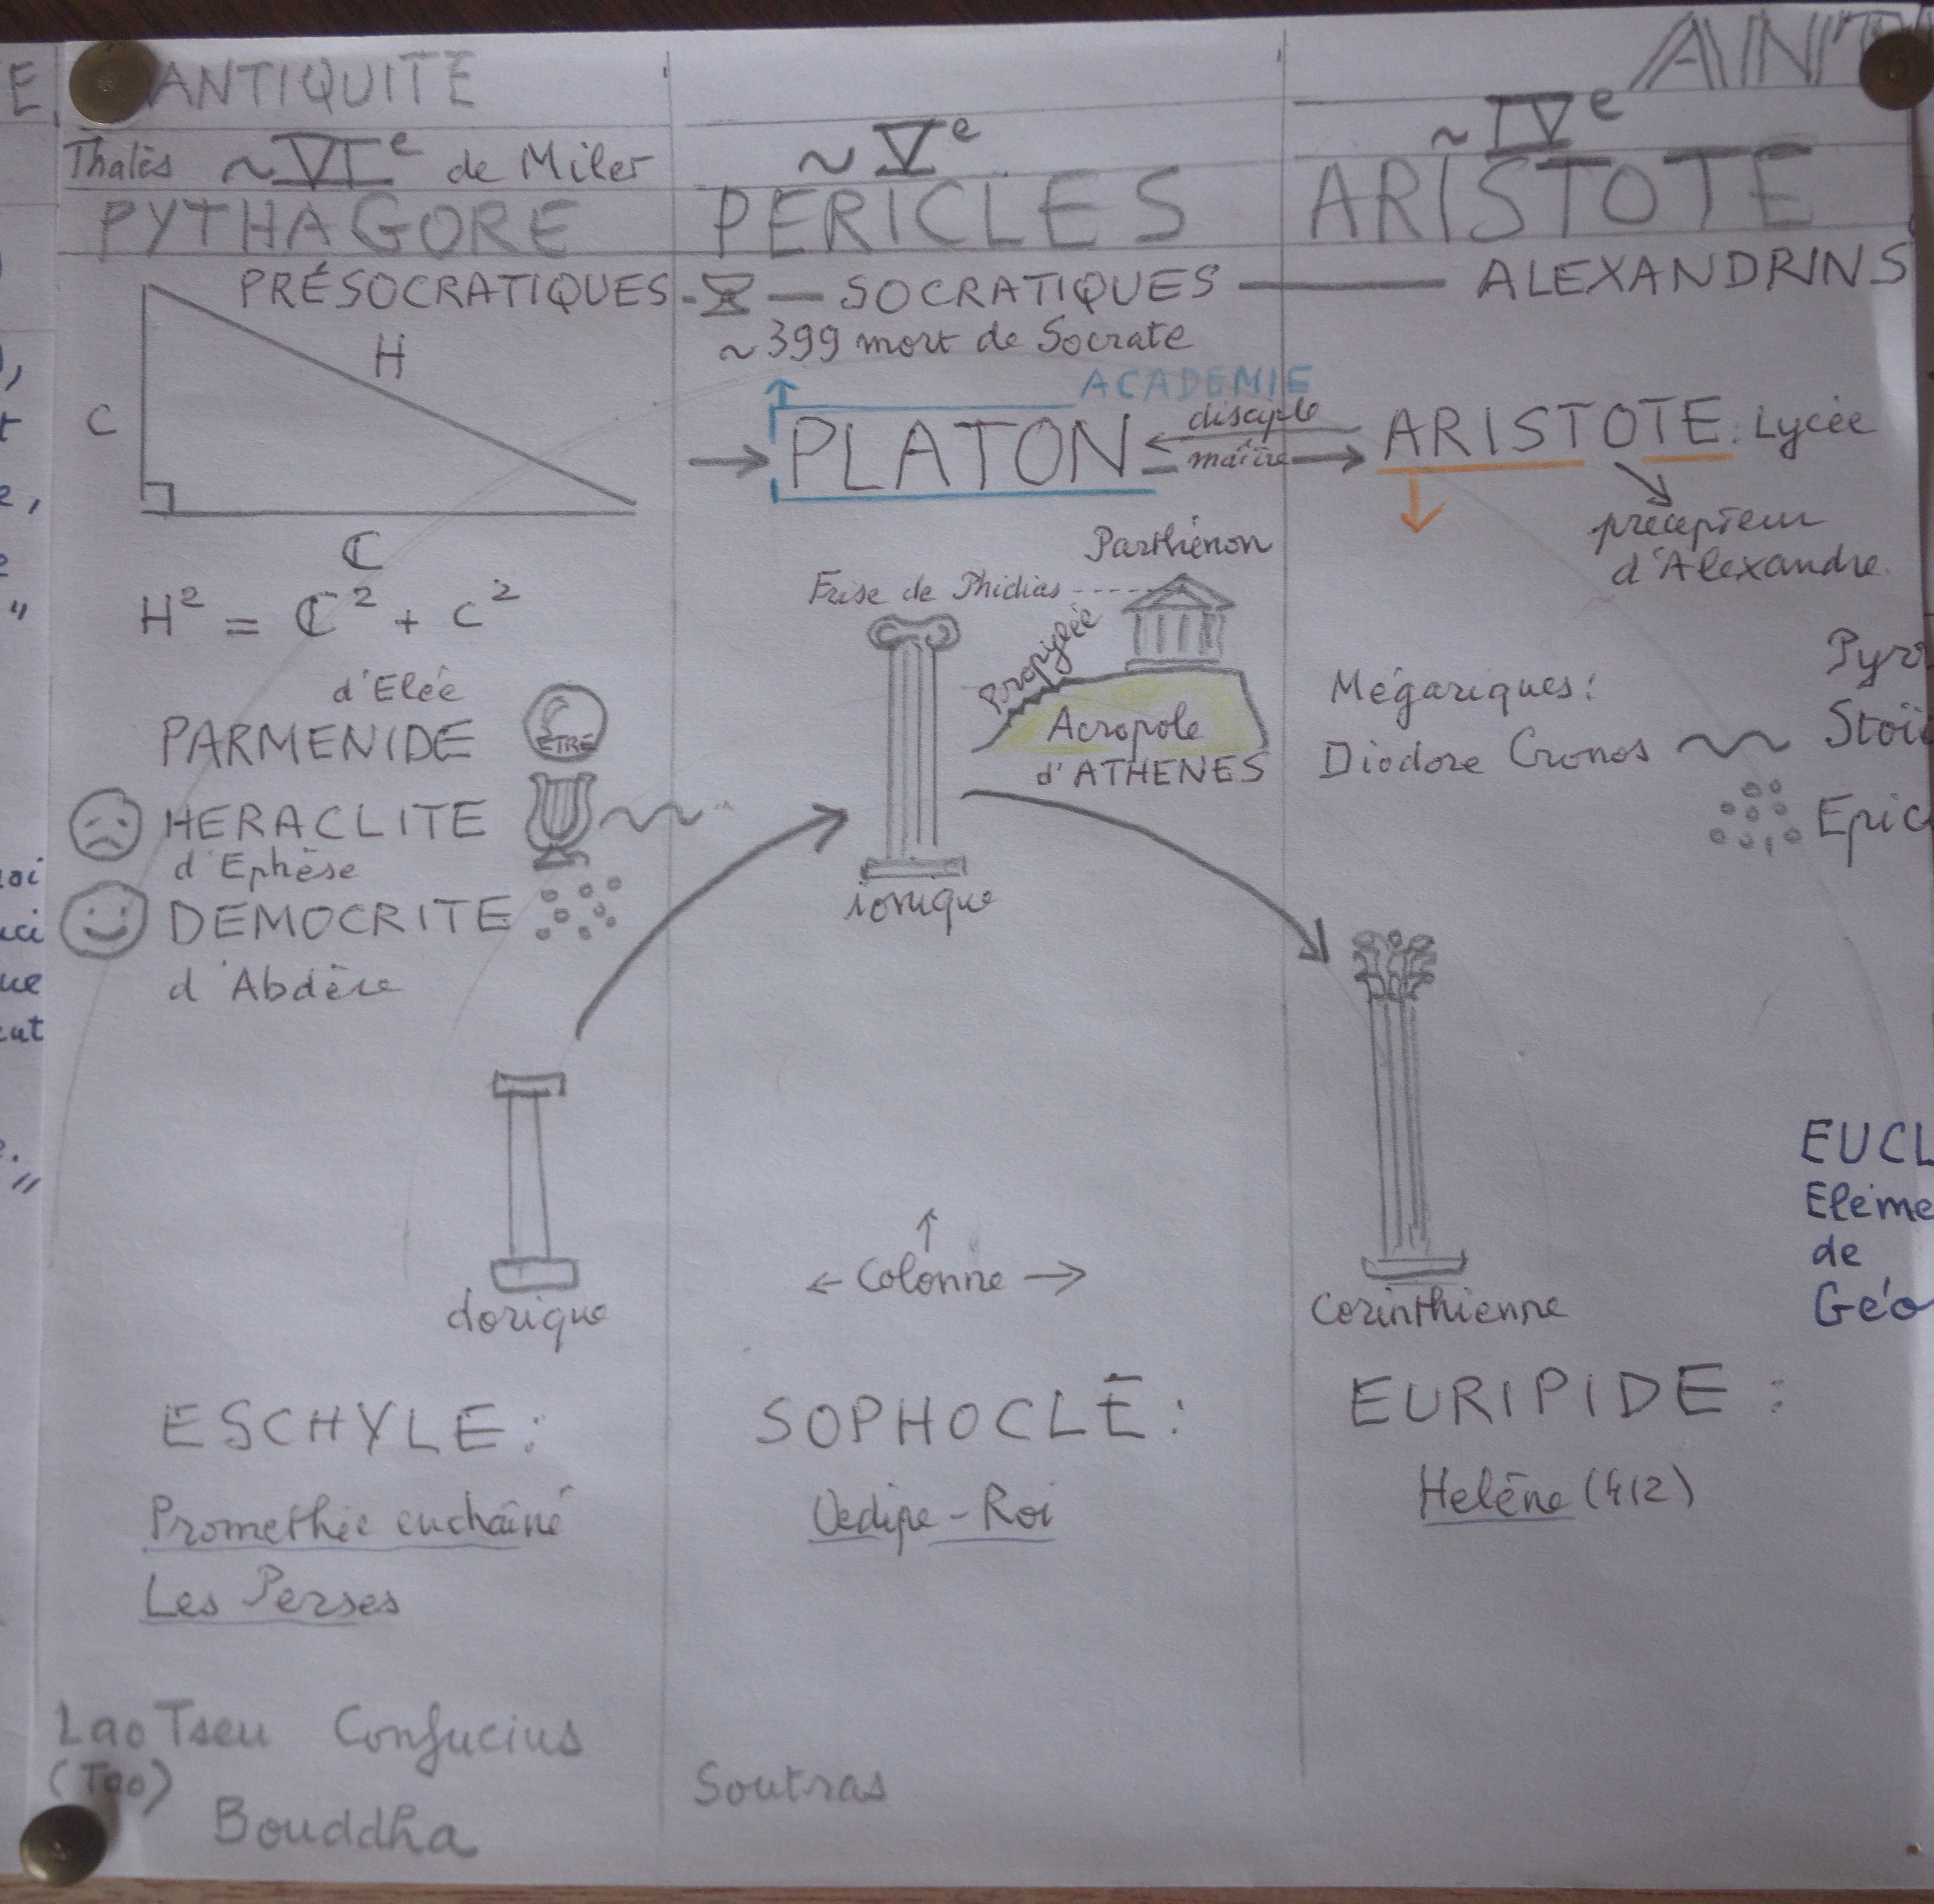 ANTIQUITE
Thalès ~VIe de Milet
PYTHAGORE
PRÉSOCRATIQUES
H
C
C
H² = C² + c²
d'Elée
PARMENIDE
ETRE
HERACLITE
d'Ephèse
DEMOCRITE
d'Abdère
dorique
ESCHYLE :
Promethée enchaîné
Les Perses
Lao Tseu Confucius
(Tao)
Bouddha
~ Ve
PERICLES
SOCRATIQUES
~399 mort de Socrate
ACADEMIE
PLATON
disciple
maître
Parthénon
Frise de Phidias
Propylée
Acropole
d'ATHENES
ionique
← Colonne →
SOPHOCLE :
Oedipe-Roi
Soutras
ANT
~ IVe
ARISTOTE
ALEXANDRINS
ARISTOTE : Lycée
précepteur
d'Alexandre.
Mégariques :
Diodore Cronos
Pyrr
Stoï
Epic
Corinthienne
EUCL
Eléme
de
Géo
EURIPIDE :
Helène (412)